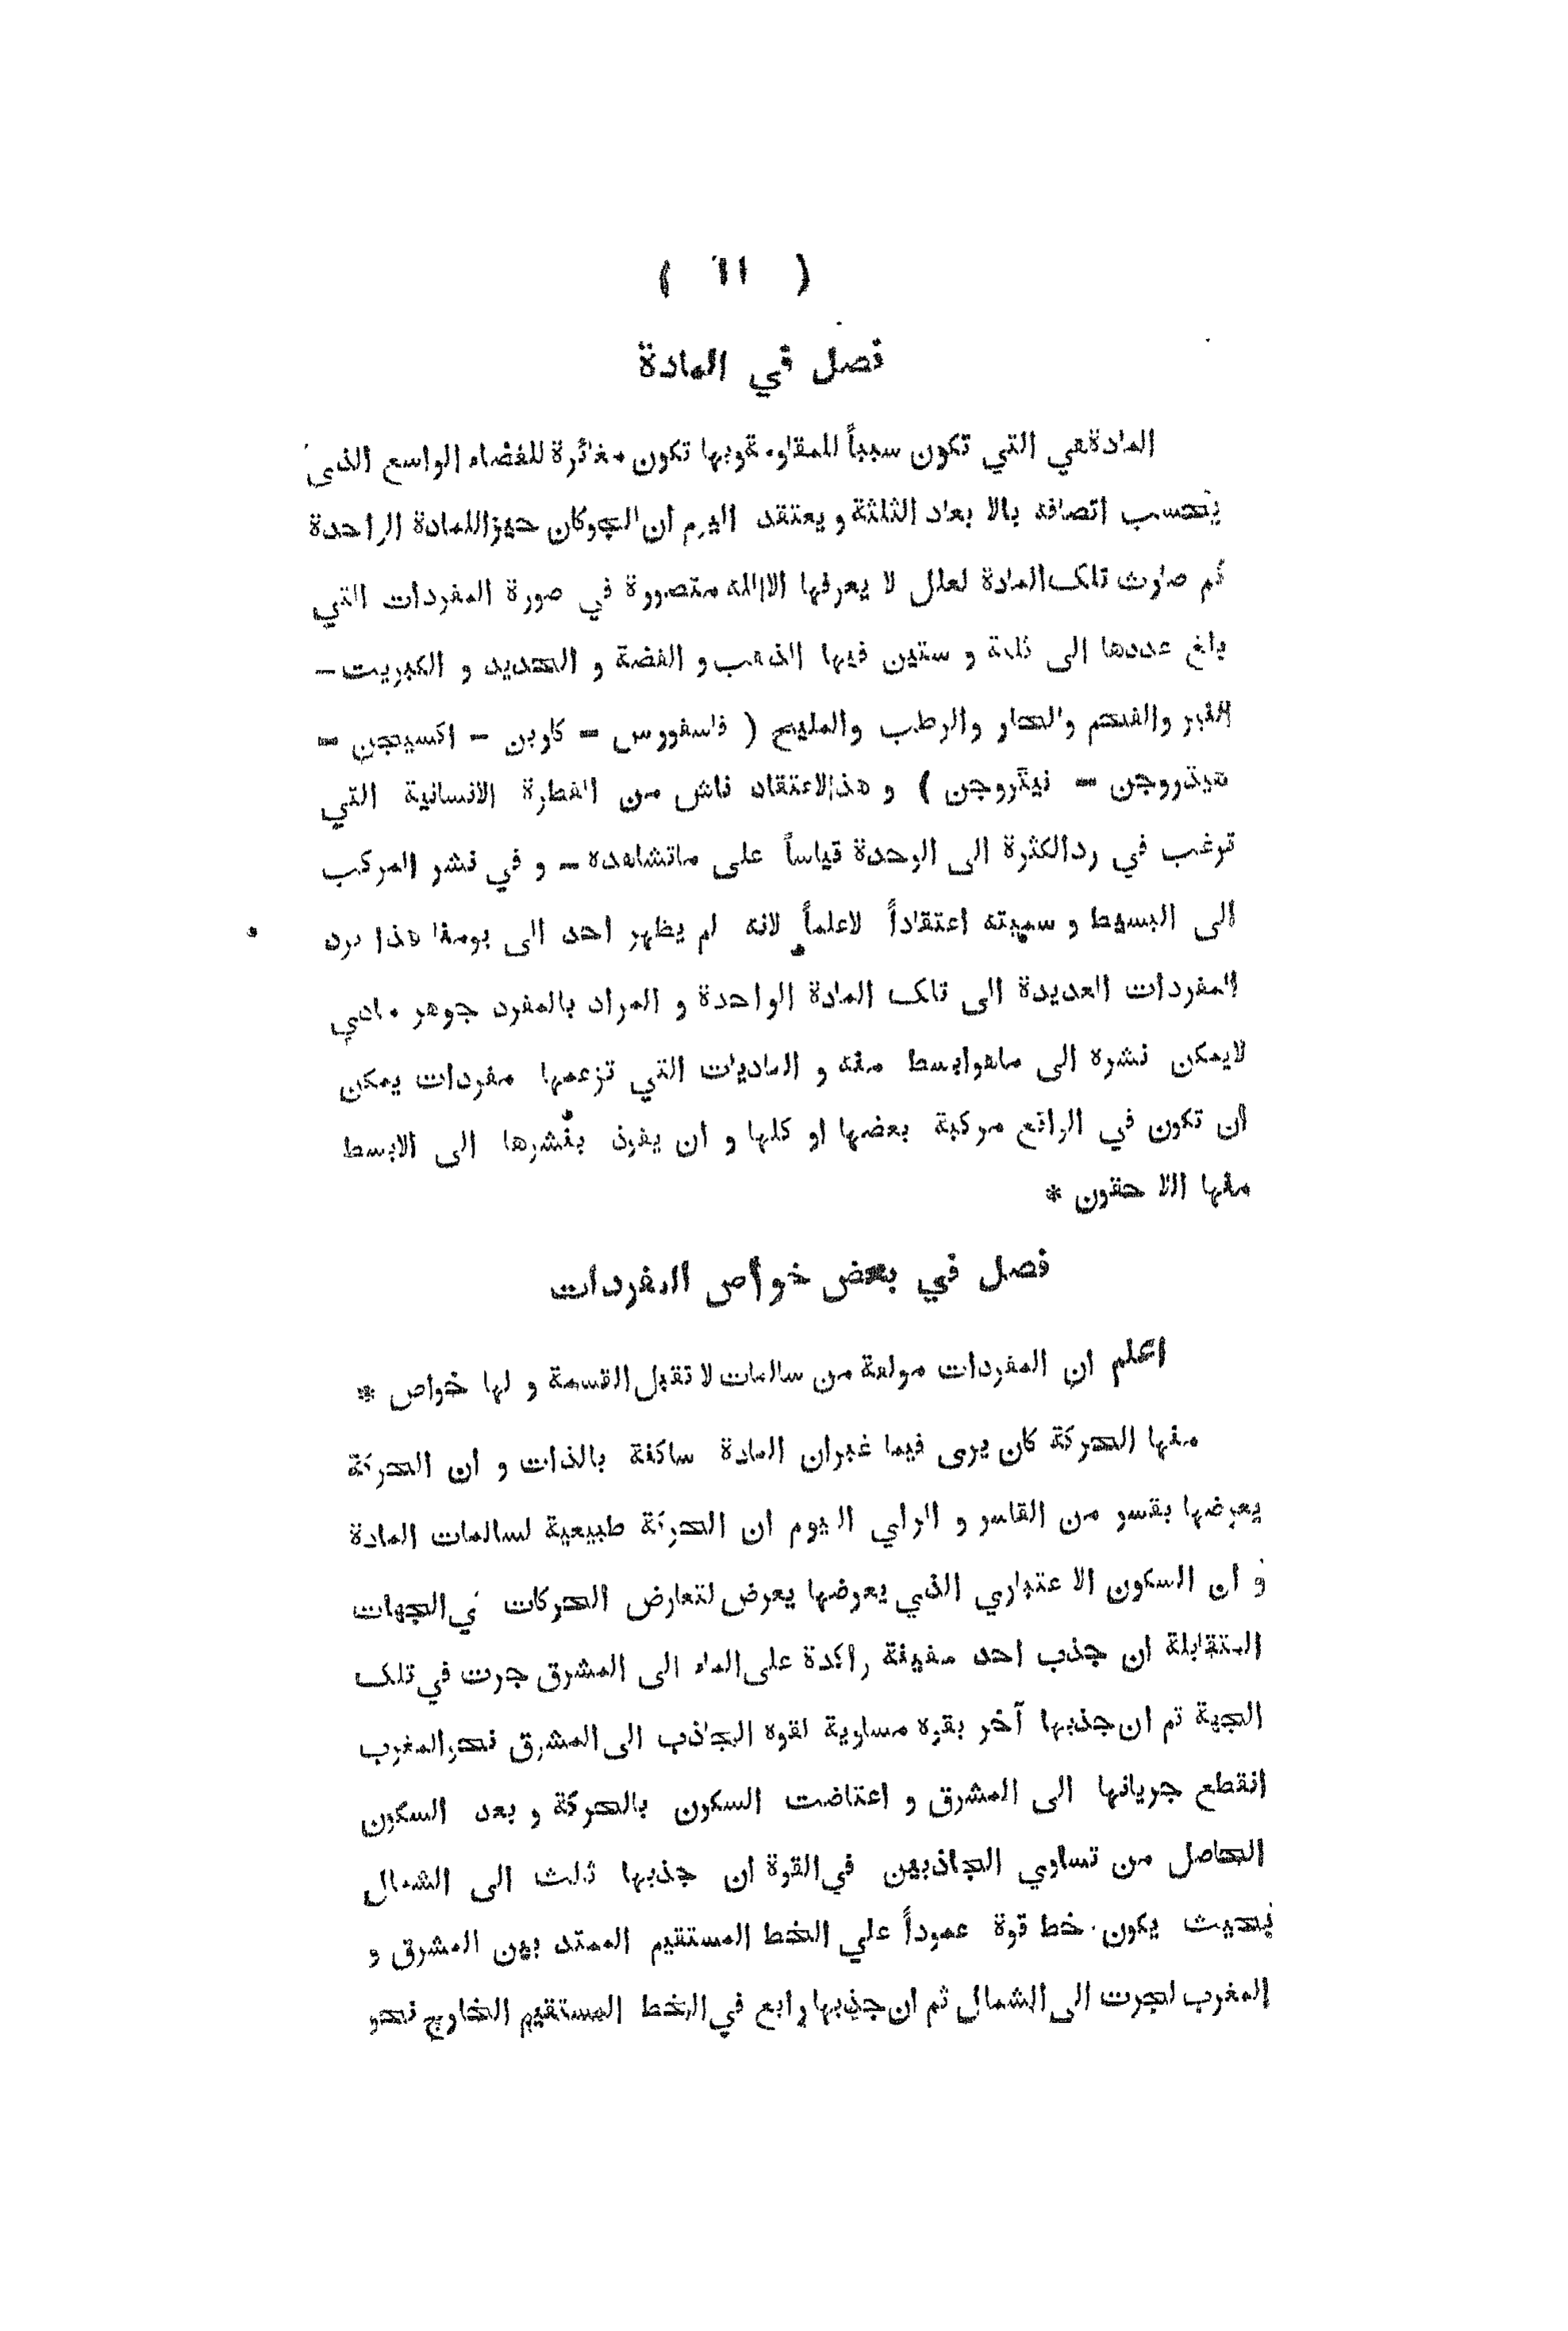 ( ١١ )
فصل في المادة
المادة هي التي تكون سبباً للمقاومة وبها تكون مغائرة للفضاء الواسع الذي
يحسب اتصافه بالا بعاد الثلثة و يعتقد اليوم ان الجوكان حيزاللمادة الواحدة
ثم صارت تلك المادة لعلل لا يعرفها الاالله متصورة في صورة المفردات التي
بلغ عددها الى ثلثة و ستين فيها الذهب و الفضة و الحديد و الكبريت –
النير والفحم والحار والرطب والمليح ( فاسفورس – كاربن – اكسيجن –
هيدروجن – نيتروجن ) و هذالاعتقاد ناش من الفطرة الانسانية التي
ترغب في ردالكثرة الى الوحدة قياساً على ماتشاهده – و في نشر المركب
الى البسيط و سميته اعتقاداً لاعلماً لانه لم يظهر احد الى يومنا هذا برد
المفردات العديدة الى تلك المادة الواحدة و المراد بالمفرد جوهر مادي
لايمكن نشره الى ماهوابسط منه و الماديات التي تزعمها مفردات يمكن
ان تكون في الواقع مركبة بعضها او كلها و ان يفوز بنشرها الى الابسط
منها اللا حقون *
فصل في بعض خواص المفردات
اعلم ان المفردات مولفة من سالمات لا تقبل القسمة و لها خواص *
منها الحركة كان يرى فيما غبران المادة ساكنة بالذات و ان الحركة
يعرضها بقسر من القاسر و الراي اليوم ان الحركة طبيعية لسالمات المادة
و ان السكون الا عتباري الذي يعرضها يعرض لتعارض الحركات في الجهات
المتقابلة ان جذب احد سفينة راكدة على الماء الى المشرق جرت في تلك
الجهة ثم ان جذبها آخر بقوه مساوية لقوه الجاذب الى المشرق نحوالمغرب
انقطع جريانها الى المشرق و اعتاضت السكون بالحركة و بعد السكون
الحاصل من تساوي الجاذبين في القوة ان جذبها ثالث الى الشمال
بحيث يكون خط قوة عموداً علي الخط المستقيم الممتد بين المشرق و
المغرب لجرت الى الشمال ثم ان جذبها رابع في الخط المستقيم الخارج نحو